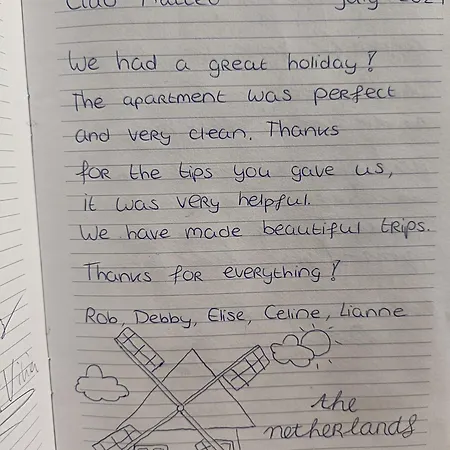 Ciao Matteo July 2021
We had a great holiday!
The apartment was perfect
and very clean. Thanks
for the tips you gave us,
it was very helpful.
We have made beautiful trips.
Thanks for everything!
Rob, Debby, Elise, Celine, Lianne
the
netherlands